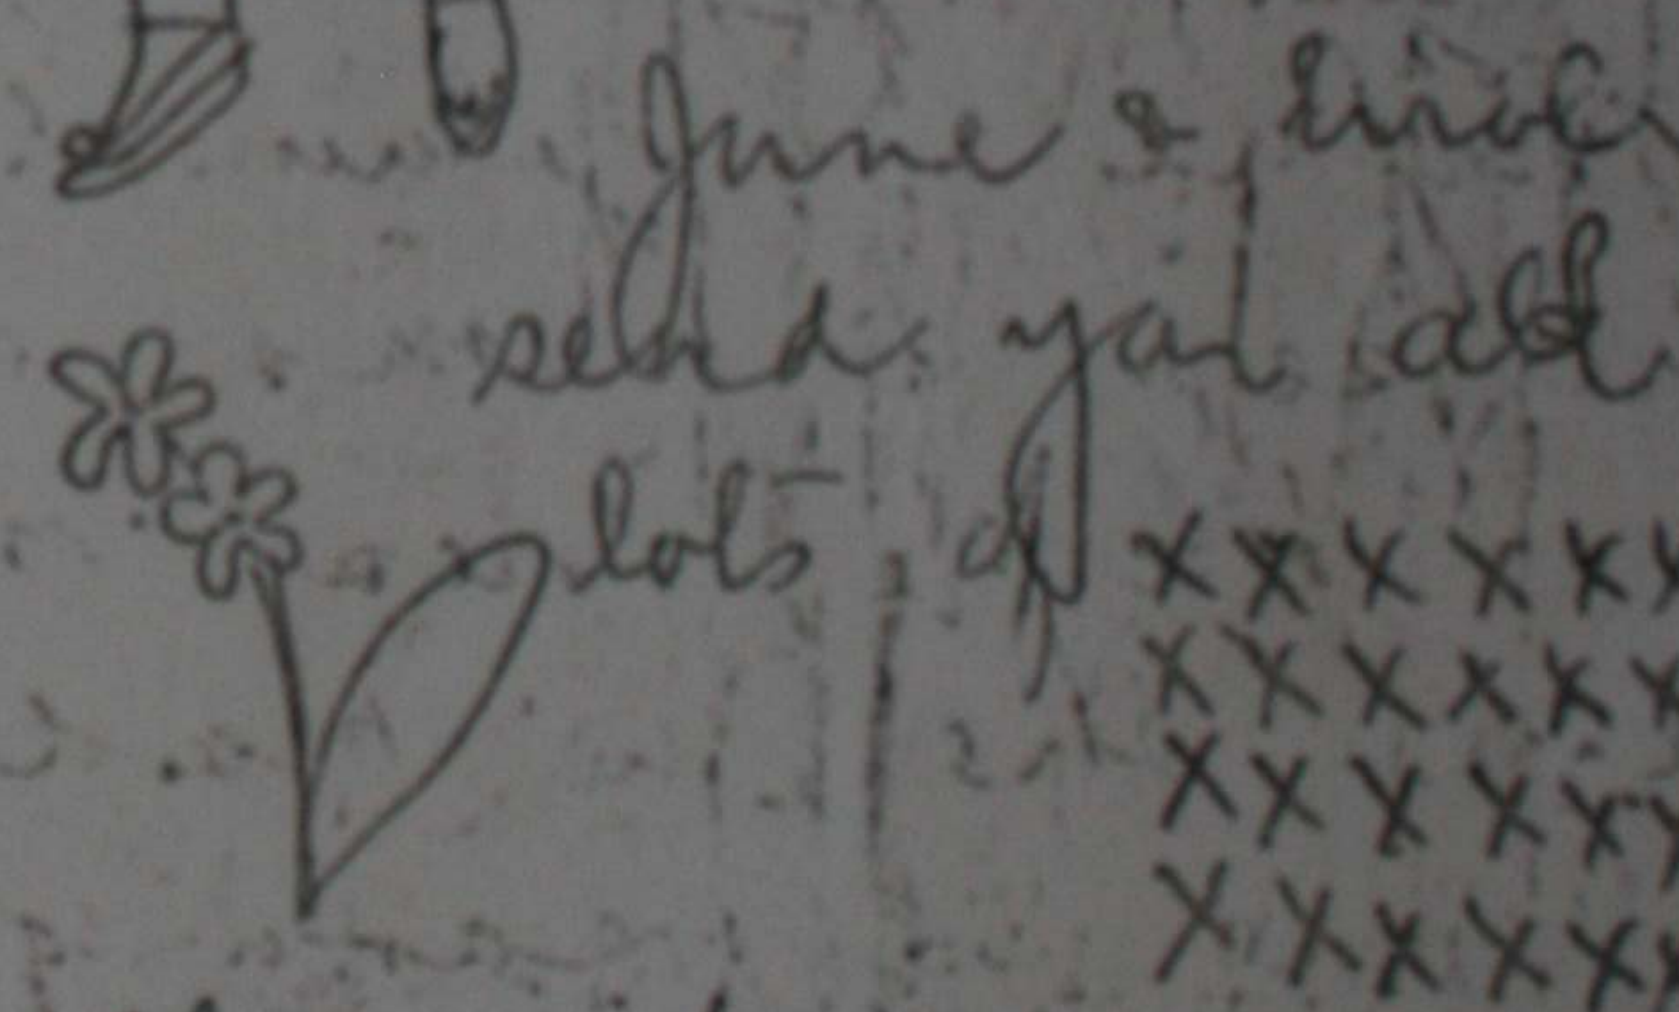 June &
send you all
lots of x x x x x x
x x x x x x
x x x x x x
x x x x x x